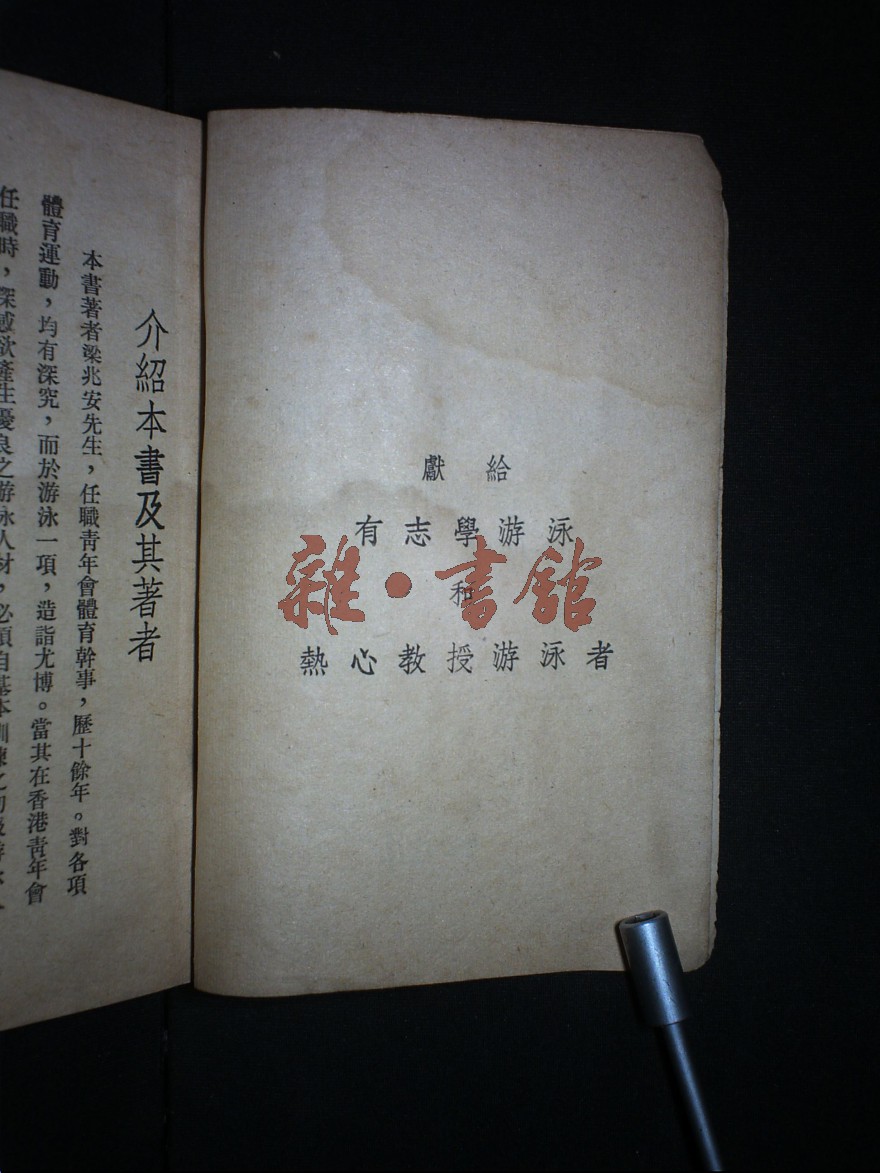 獻給
有志學游泳
和
熱心教授游泳者
雜·書館
介紹本書及其著者
本書著者梁兆安先生，任職青年會體育幹事，歷十餘年。對各項
體育運動，均有深究，而於游泳一項，造詣尤博。當其在香港青年會
任職時，深感欲產生優良之游泳人材，必須自基本訓練之初